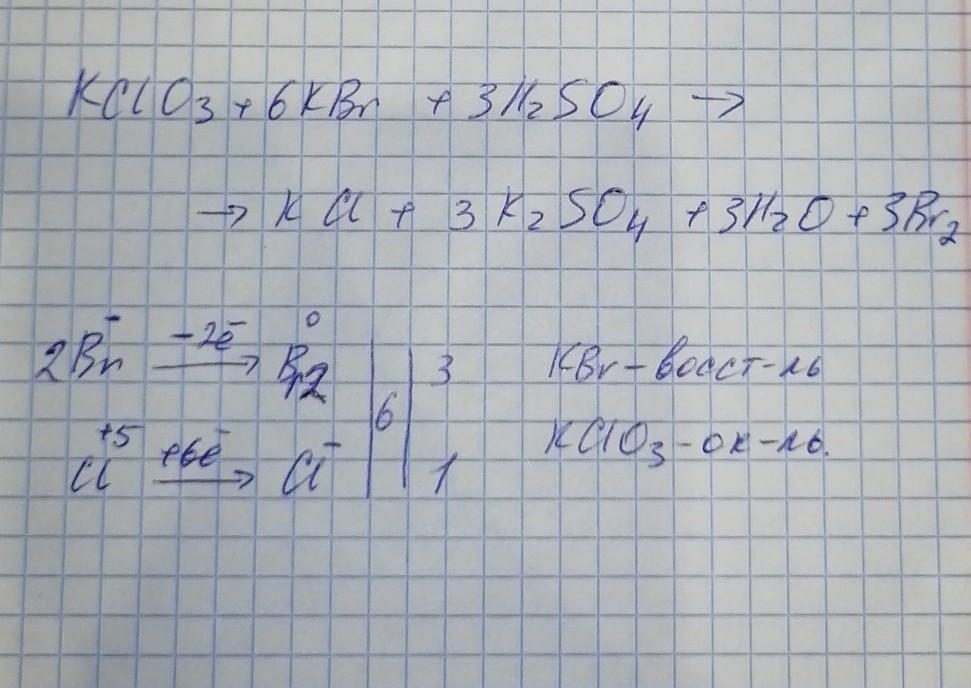 KClO₃ + 6KBr + 3H₂SO₄ →
→ KCl + 3K₂SO₄ + 3H₂O + 3Br₂
2Br⁻ −2ē → Br₂⁰ | 6 | 3 KBr – восст-ль
Cl⁺⁵ +6ē → Cl⁻ | | 1 KClO₃ - ок-ль.